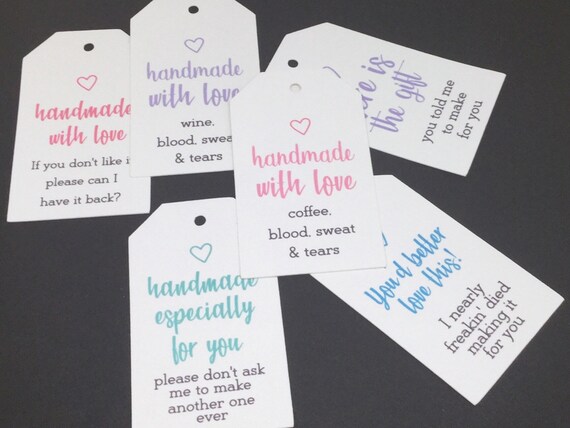 handmade
with love
If you don't like it
please can I
have it back?
handmade
with love
wine,
blood, sweat
& tears
is
the gift
you told me
to make
for you
handmade
with love
coffee,
blood, sweat
& tears
handmade
especially
for you
please don't ask
me to make
another one
ever
You'd better
love this!
I nearly
freakin' died
making it
for you